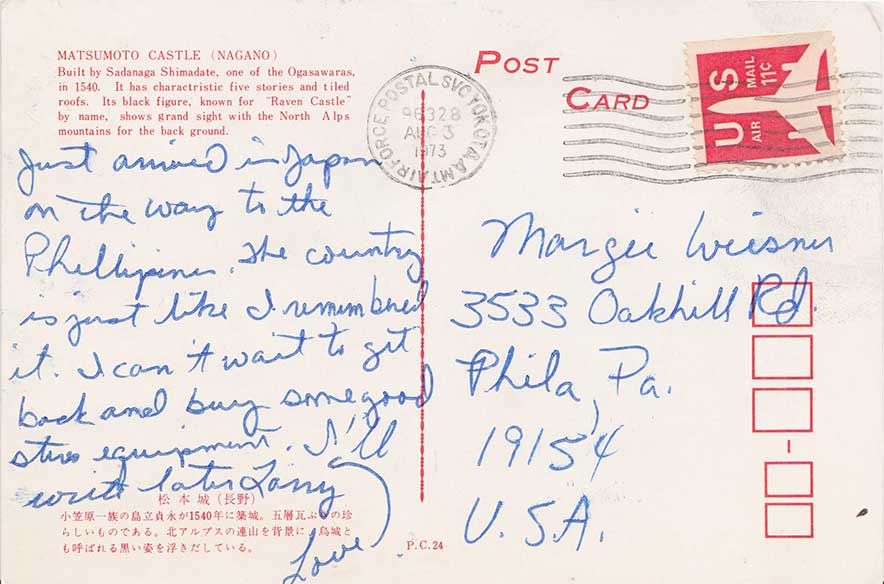 MATSUMOTO CASTLE (NAGANO)
Built by Sadanaga Shimadate, one of the Ogasawaras,
in 1540. It has charactristic five stories and tiled
roofs. Its black figure, known for "Raven Castle"
by name, shows grand sight with the North Alps
mountains for the back ground.
POST
CARD
AIR FORCE POSTAL SVC YOKOTA AMT
96328
AUG 3
1973
US
AIR MAIL
11¢
Just arrived in Japan
on the way to the
Phillipines. The country
is just like I remembered
it. I can't wait to get
back and buy some good
stereo equipment. I'll
write later Larry
Love
Margie Wiesner
3533 Oakhill Rd.
Phila, Pa.
19154
U.S.A.
松本城(長野)
小笠原一族の島立貞永が1540年に築城。五層瓦ぶきの珍
らしいものである。北アルプスの連山を背景に、烏城と
も呼ばれる黒い姿を浮きだしている。
P.C.24